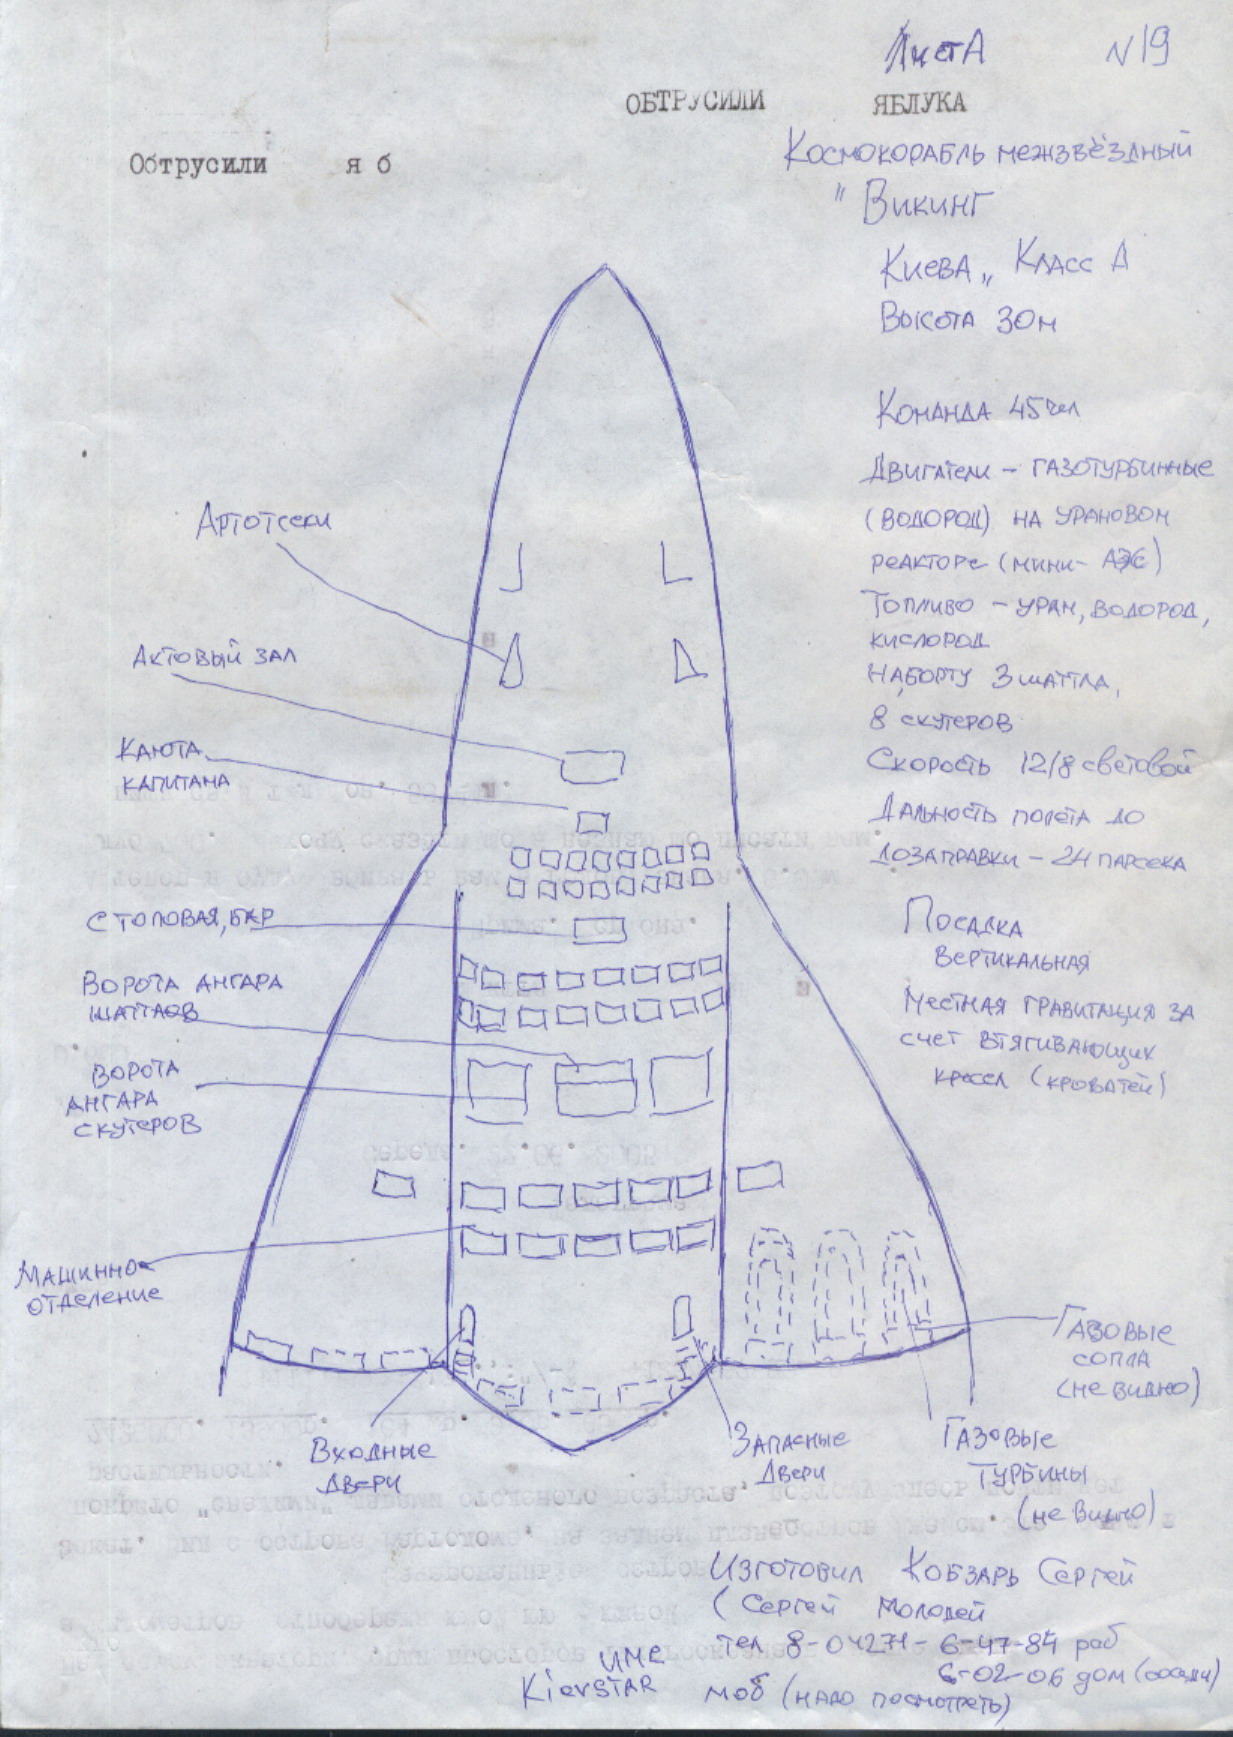 ЛистА N19
ОБТРУСИЛИ ЯБЛУКА
Обтрусили я б
Космокорабль межзвёздный
"Викинг
Киева" Класс А
Высота 30м
Команда 45чел
Двигатели - газотурбинные
(водород) на урановом
реакторе (мини-АЭС)
Топливо - уран, водород,
кислород
На борту 3 шаттла,
8 скутеров
Скорость 12/8 световой
Дальность полёта до
дозаправки - 24 парсека
Посадка
вертикальная
Местная гравитация за
счет втягивающих
кресел (кроватей)
Артотсеки
Актовый зал
Каюта
капитана
Столовая, бар
Ворота ангара
шаттлов
Ворота
ангара
скутеров
Машинно
отделение
Входные
двери
Запасные
двери
Газовые
сопла
(не видно)
Газовые
турбины
(не видно)
Изготовил Кобзарь Сергей
(Сергей Молодей
тел 8-04271-6-47-84 раб
6-02-06 дом (соседи)
UMC
KievSTAR моб (надо посмотреть)